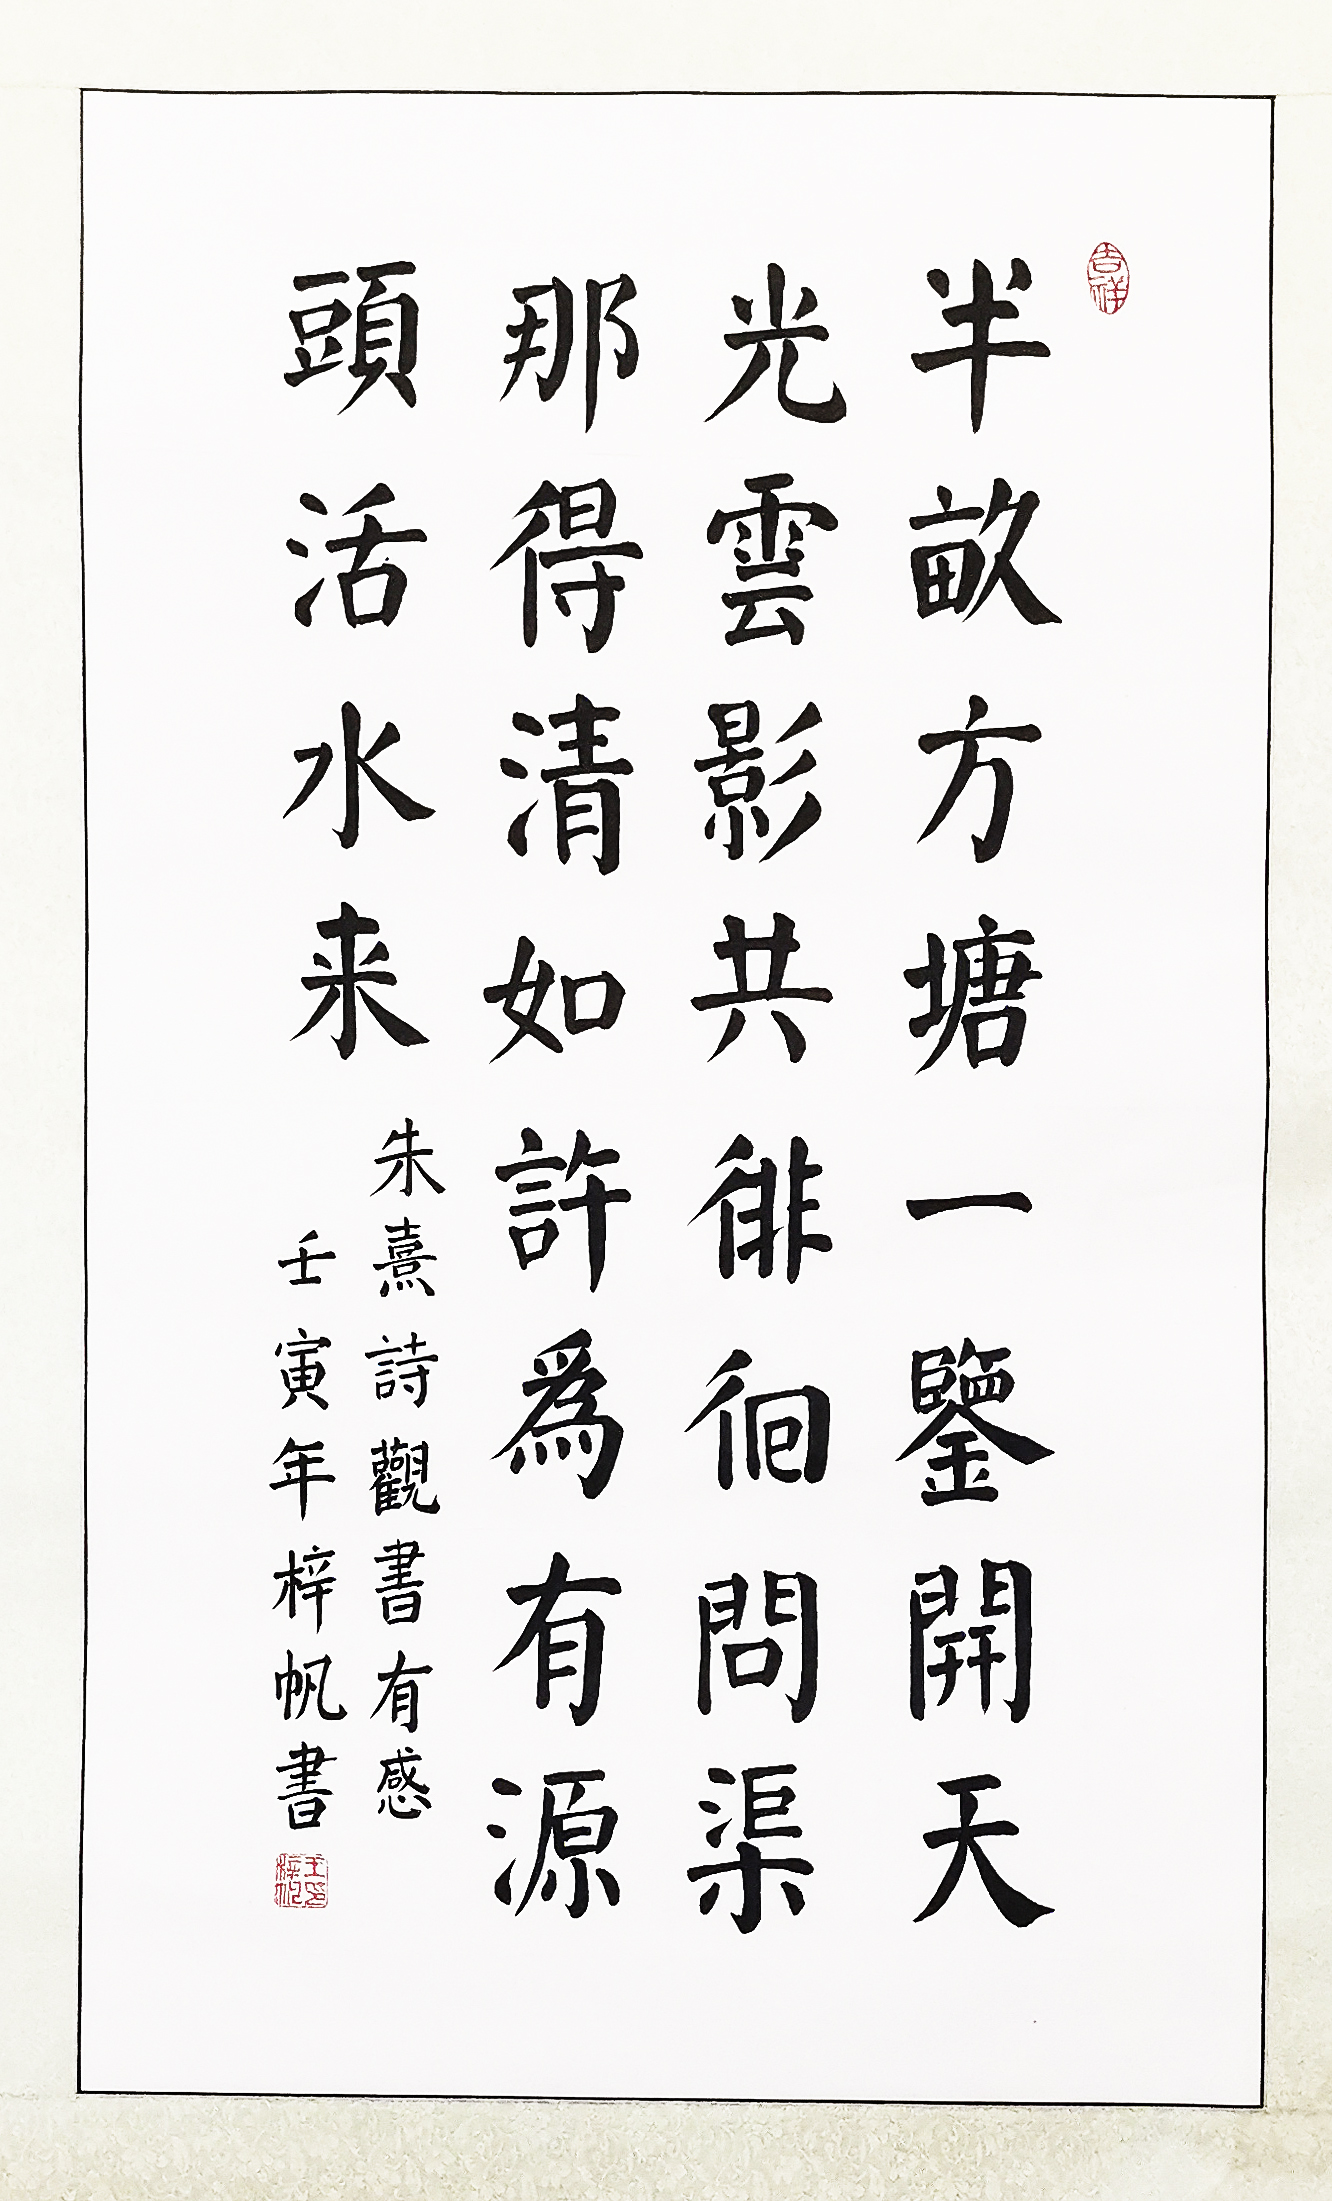 吉祥
半畝方塘一鑒開天
光雲影共徘徊問渠
那得清如許爲有源
頭活水来
朱熹詩觀書有感
壬寅年梓帆書
王梓帆印